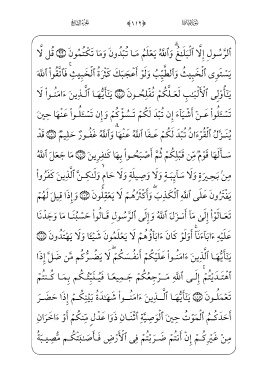 ٱلرَّسُولِ إِلَّا ٱلْبَلَٰغُ ۗ وَٱللَّهُ يَعْلَمُ مَا تُبْدُونَ وَمَا تَكْتُمُونَ ۝ قُل لَّا
يَسْتَوِى ٱلْخَبِيثُ وَٱلطَّيِّبُ وَلَوْ أَعْجَبَكَ كَثْرَةُ ٱلْخَبِيثِ ۚ فَٱتَّقُوا۟ ٱللَّهَ
يَٰٓأُو۟لِى ٱلْأَلْبَٰبِ لَعَلَّكُمْ تُفْلِحُونَ ۝ يَٰٓأَيُّهَا ٱلَّذِينَ ءَامَنُوا۟ لَا
تَسْـَٔلُوا۟ عَنْ أَشْيَآءَ إِن تُبْدَ لَكُمْ تَسُؤْكُمْ وَإِن تَسْـَٔلُوا۟ عَنْهَا حِينَ
يُنَزَّلُ ٱلْقُرْءَانُ تُبْدَ لَكُمْ عَفَا ٱللَّهُ عَنْهَا ۗ وَٱللَّهُ غَفُورٌ حَلِيمٌ ۝ قَدْ
سَأَلَهَا قَوْمٌ مِّن قَبْلِكُمْ ثُمَّ أَصْبَحُوا۟ بِهَا كَٰفِرِينَ ۝ مَا جَعَلَ ٱللَّهُ
مِنۢ بَحِيرَةٍ وَلَا سَآئِبَةٍ وَلَا وَصِيلَةٍ وَلَا حَامٍ ۙ وَلَٰكِنَّ ٱلَّذِينَ كَفَرُوا۟
يَفْتَرُونَ عَلَى ٱللَّهِ ٱلْكَذِبَ ۖ وَأَكْثَرُهُمْ لَا يَعْقِلُونَ ۝ وَإِذَا قِيلَ لَهُمْ
تَعَالَوْا۟ إِلَىٰ مَآ أَنزَلَ ٱللَّهُ وَإِلَى ٱلرَّسُولِ قَالُوا۟ حَسْبُنَا مَا وَجَدْنَا
عَلَيْهِ ءَابَآءَنَآ ۚ أَوَلَوْ كَانَ ءَابَآؤُهُمْ لَا يَعْلَمُونَ شَيْـًٔا وَلَا يَهْتَدُونَ ۝
يَٰٓأَيُّهَا ٱلَّذِينَ ءَامَنُوا۟ عَلَيْكُمْ أَنفُسَكُمْ ۖ لَا يَضُرُّكُم مَّن ضَلَّ إِذَا
ٱهْتَدَيْتُمْ ۚ إِلَى ٱللَّهِ مَرْجِعُكُمْ جَمِيعًا فَيُنَبِّئُكُم بِمَا كُنتُمْ
تَعْمَلُونَ ۝ يَٰٓأَيُّهَا ٱلَّذِينَ ءَامَنُوا۟ شَهَٰدَةُ بَيْنِكُمْ إِذَا حَضَرَ
أَحَدَكُمُ ٱلْمَوْتُ حِينَ ٱلْوَصِيَّةِ ٱثْنَانِ ذَوَا عَدْلٍ مِّنكُمْ أَوْ ءَاخَرَانِ
مِنْ غَيْرِكُمْ إِنْ أَنتُمْ ضَرَبْتُمْ فِى ٱلْأَرْضِ فَأَصَٰبَتْكُم مُّصِيبَةُ